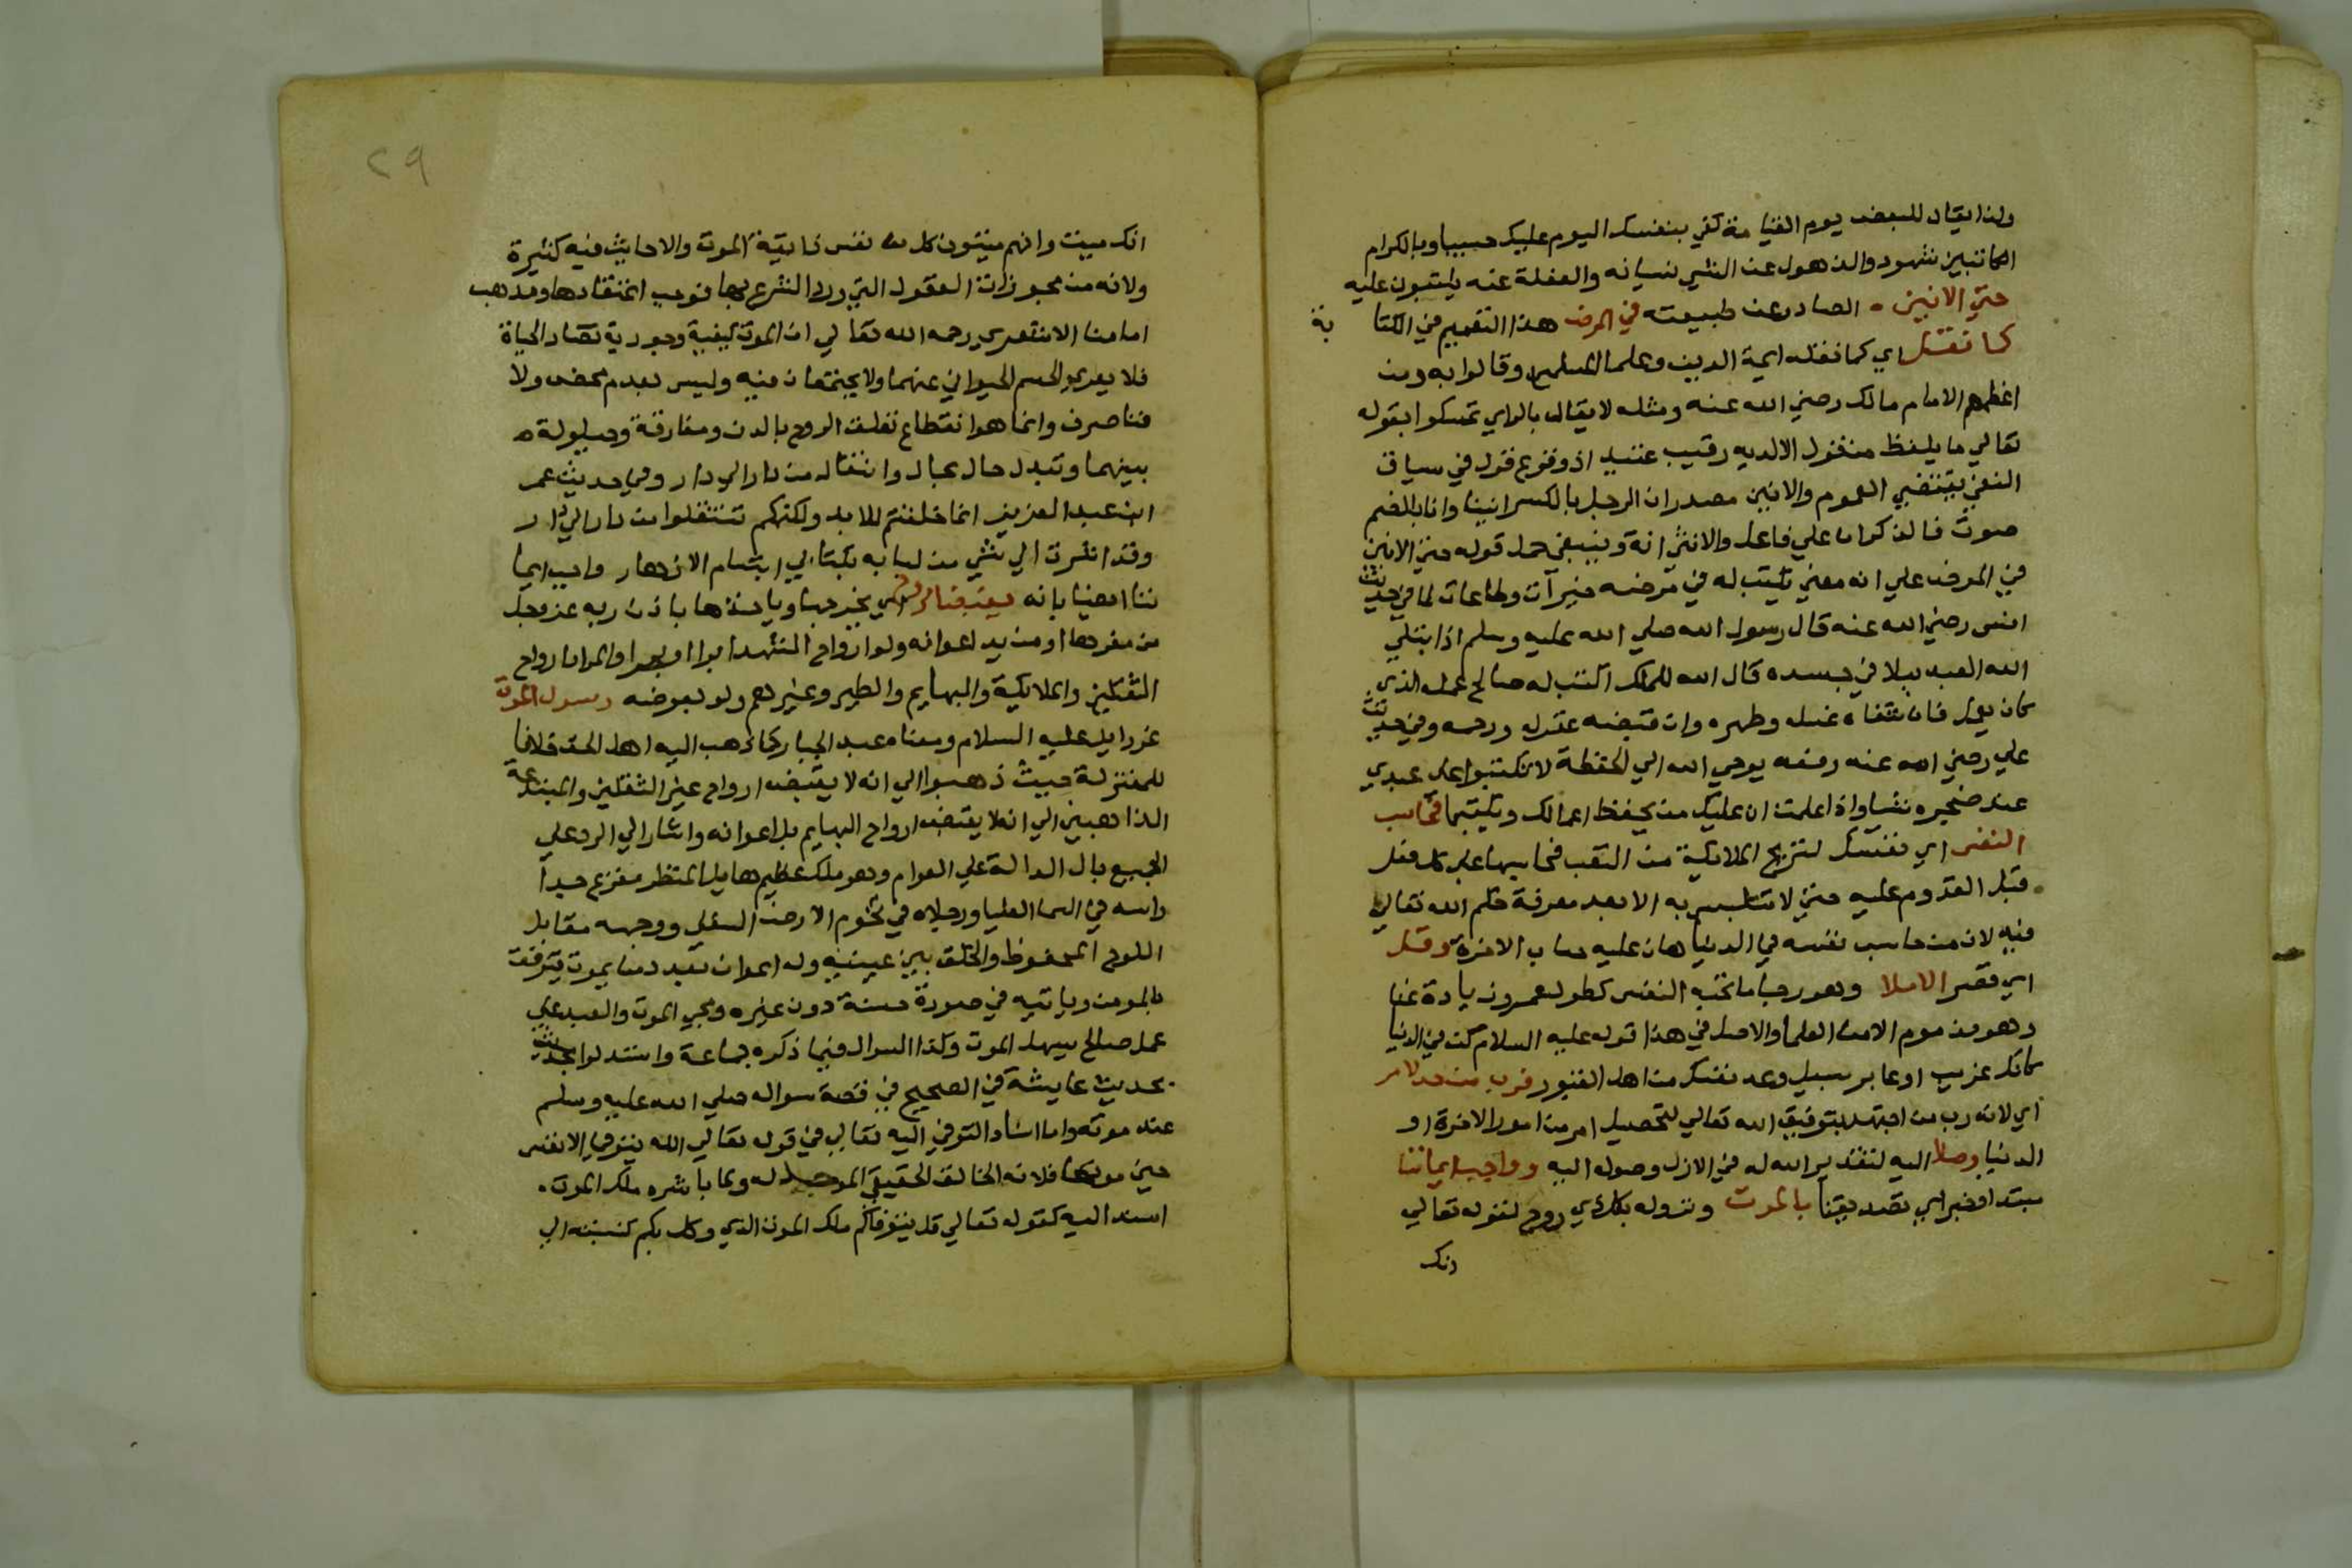 ولذا يقال للبعض يوم القيامة كفي بنفسك اليوم عليك حسيبا وبالكرام
الكاتبين شهود والذهول عن الشي نسيانه والغفلة عنه يكتبون عليه
حتي الانين الصادر عن طبيعته في المرض هذا التعميم في الكتابة
كما نقل اي كما نقله ايمة الدين وعلما المسلمين وقالوا به ومن
اعظمهم الامام مالك رضي الله عنه ومثله لا يقال بالراي تمسكوا بقوله
تعالي ما يلفظ من قول الا لديه رقيب عتيد اذ وقوع قول في سياق
النفي يقتضي العموم والانين مصدر ان الرجل بالكسر انينا وانا بالضم
صوت فالذكر ان علي فاعل والانثي انة وينبغي حمل قوله حتي الانين
في المرض علي انه معني يكتب له في مرضه خيرات وطاعات لما في حديث
انس رضي الله عنه قال رسول الله صلي الله عليه وسلم اذا ابتلي
الله العبد ببلا في جسده قال الله للملك اكتب له صالح عمله الذي
كان يعمل فان شفاه غسله وطهره وان قبضه غفر له ورحمه وفي حديث
علي رضي الله عنه رفعه يوحي الله الي الحفظة لا تكتبوا علي عبدي
عند ضجره شيا واذا علمت ان عليك من يحفظ اعمالك ويكتبها فحاسب
النفس اي نفسك لتريح الملايكة من التعب فحاسبها علي كل فعل
قبل القدوم عليه حتي لا تتلبس به الا بعد معرفة حكم الله تعالي
فيه لان من حاسب نفسه في الدنيا هان عليه حساب الاخرة وقلل
اي قصر الاملا وهو رجا ما تحبه النفس كطول عمر وزيادة غنا
وهو مذموم الا من العلما والاصل في هذا قوله عليه السلام كن في الدنيا
كانك غريب او عابر سبيل وعد نفسك من اهل القبور فرب من جد لامر
اي لانه رب من اجتهد بتوفيق الله تعالي لتحصيل امر من امور الاخرة او
الدنيا وصلا اليه لتقدير الله له في الازل وصوله اليه وواجب ايماننا
مبتدا وخبر اي تصديقنا بالموت ونزوله بكل ذي روح لقوله تعالي
انك
٢٩
انك ميت وانهم ميتون كل نفس ذايقة الموت والاحاديث فيه كثيرة
ولانه من مجوزات العقول التي ورد الشرع بها فوجب اعتقادها ومذهب
امامنا الاشعري رحمه الله تعالي ان الموت كيفية وجودية تضاد الحياة
فلا يعري الجسم الحيواني عنهما ولا يجتمعان فيه وليس بعدم محض ولا
فنا صرف وانما هو انقطاع تعلق الروح بالبدن ومفارقة وحيلولة
بينهما وتبدل حال بحال وانتقال من دار الي دار وفي حديث عمر
ابن عبد العزيز انما خلقتم للابد ولكنكم تنتقلوا من دار الي دار
وقد اشرت الي شي من لبابه بكتابي ابتسام الازهار واجب ايما
ننا ايضا بانه يقبض الروح اي يخرجها وياخذها باذن ربه عز وجل
من مقرها او من يد اعوانه ولو ارواح الشهدا برا او بحرا والمراد ارواح
الثقلين والملايكة والبهايم والطير وغيرهم ولو بعوضه رسول الموت
عزرايل عليه السلام ومعناه عبد الجبار كما ذهب اليه اهل الحق خلافا
للمعتزلة حيث ذهبوا الي انه لا يقبض ارواح غير الثقلين والمبتدعة
الذاهبين الي انه لا يقبض ارواح البهايم بل اعوانه واشار الي الرد علي
الجميع بال الدالة علي العموم وهو ملك عظيم هايل المنظر مفزع جدا
راسه في السما العليا ورجلاه في تخوم الارض السفلي ووجهه مقابل
اللوح المحفوظ والخلق بين عينيه وله اعوان بعدد من يموت يترفق
بالمومن وياتيه في صورة حسنة دون غيره ومجي الموت والعبد علي
عمل صالح يسهل الموت وكذا السواك فيما ذكره جماعة واستدلوا بحديث
بحديث عايشة في الصحيح في قصة سواكه صلي الله عليه وسلم
عند موته واما اسناد التوفي اليه تعالي في قوله تعالي الله يتوفي الانفس
حين موتها فلانه الخالق الحقيقي الموجد له ولما باشره ملك الموت
اسند اليه كقوله تعالي قل يتوفاكم ملك الموت الذي وكل بكم كنسبته الي